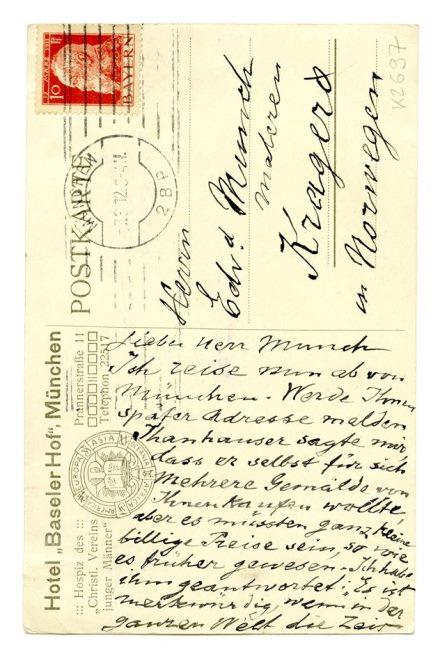 Hotel „Baseler Hof“, München
::: Hospiz des :::
„Christl. Vereins
junger Männer“
Prannerstraße 11
Telephon 22517
EUROPA
ASIA
AFRICA
AMERICA
POSTKARTE
10
BAYERN
12
2BP
K2697
Herrn
Edv. Munch
maleren
Kragerø
in Norwegen
Lieber Herr Munch
Ich reise nun ab von
München. Werde Ihnen
später Adresse melden
Thanhauser sagte mir,
dass er selbst für sich
mehrere Gemälde von
Ihnen kaufen wollte
aber es müssten ganz kleine
billige Preise sein, so wie
es früher gewesen. Ich habe
ihm geantwortet: „Es ist
merkwürdig, wenn in der
ganzen Welt die Zeit